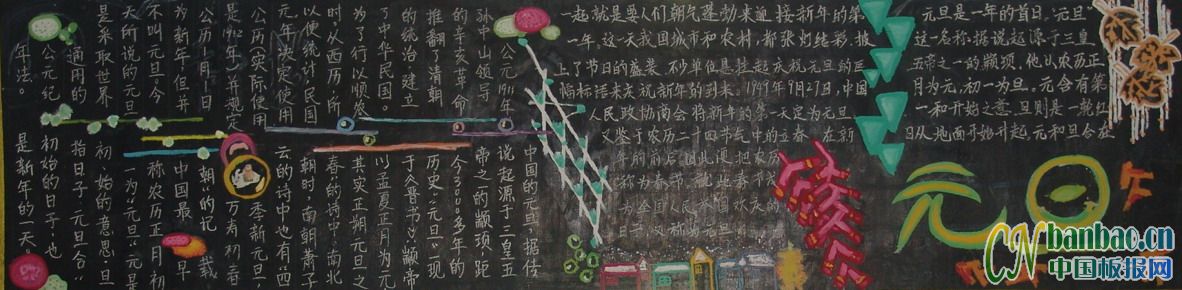 元旦是一年的首日。“元旦”
这一名称,据说起源于三皇
五帝之一的颛顼,他以农历正
月为元,初一为旦。元含有第
一和开始之意,旦则是一轮红
日从地面开始升起,元和旦合在
一起就是要人们朝气蓬勃来迎接新年的第
一年。这一天我国城市和农村,都张灯结彩,披
上了节日的盛装,不少单位悬挂起庆祝元旦的巨
幅标语来庆祝新年的到来。1949年9月27日,中国
人民政协商会将新年的第一天定为元旦,
又鉴于农历二十四节气中的立春,在新
年的前后,因此便把农历
称为春节,就此春节
为全国人民共同欢庆的
日节,又称为元旦
公元1911年,
孙中山领导
的辛亥革命
推翻了清朝
的统治,建立
了中华民国。
为了行以顺农
时以西历,所
以便统计,民国
元年决定使用
公历(实际使用
是1912年),并规定
公历1月1日
为新年,但并
不叫元旦,今
天所说的元旦
是采取世界
通用的
公元纪
年法。
中国的元旦,据传
说起源于三皇五
帝之一的颛顼,距
今3000多年的
历史“元旦”一现
于《晋书》:“颛帝
以孟夏正月为元
其实正朔元旦之
春的诗中南北
朝时,南朝萧子
云的诗中也有“四
季新元旦,
万寿初春
朝”的记
载
中国最早
称农历正月初
一为“元旦”元是
初始的意思,旦
指日子,元旦合
初始的日子,也
是新年的一天
元旦
CN banbao.cn
中国板报网